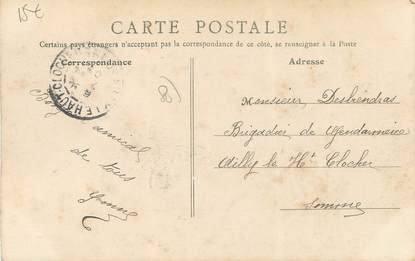 15€
CARTE POSTALE
Certains pays étrangers n'acceptant pas la correspondance de ce côté, se renseigner à la Poste
Correspondance
Adresse
(80)
LE HAUT-CLOCHER
amical
de tous
Yvonne
Monsieur
Brigadier de Gendarmerie
Ailly le Ht Clocher
Somme